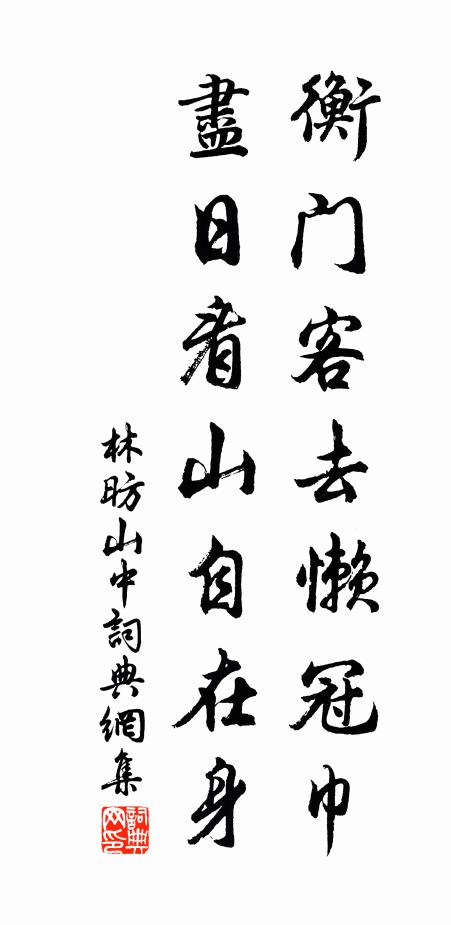 衡门客去懒冠巾
盡日看山自在身
林昉山中詞典網集
詞典网印